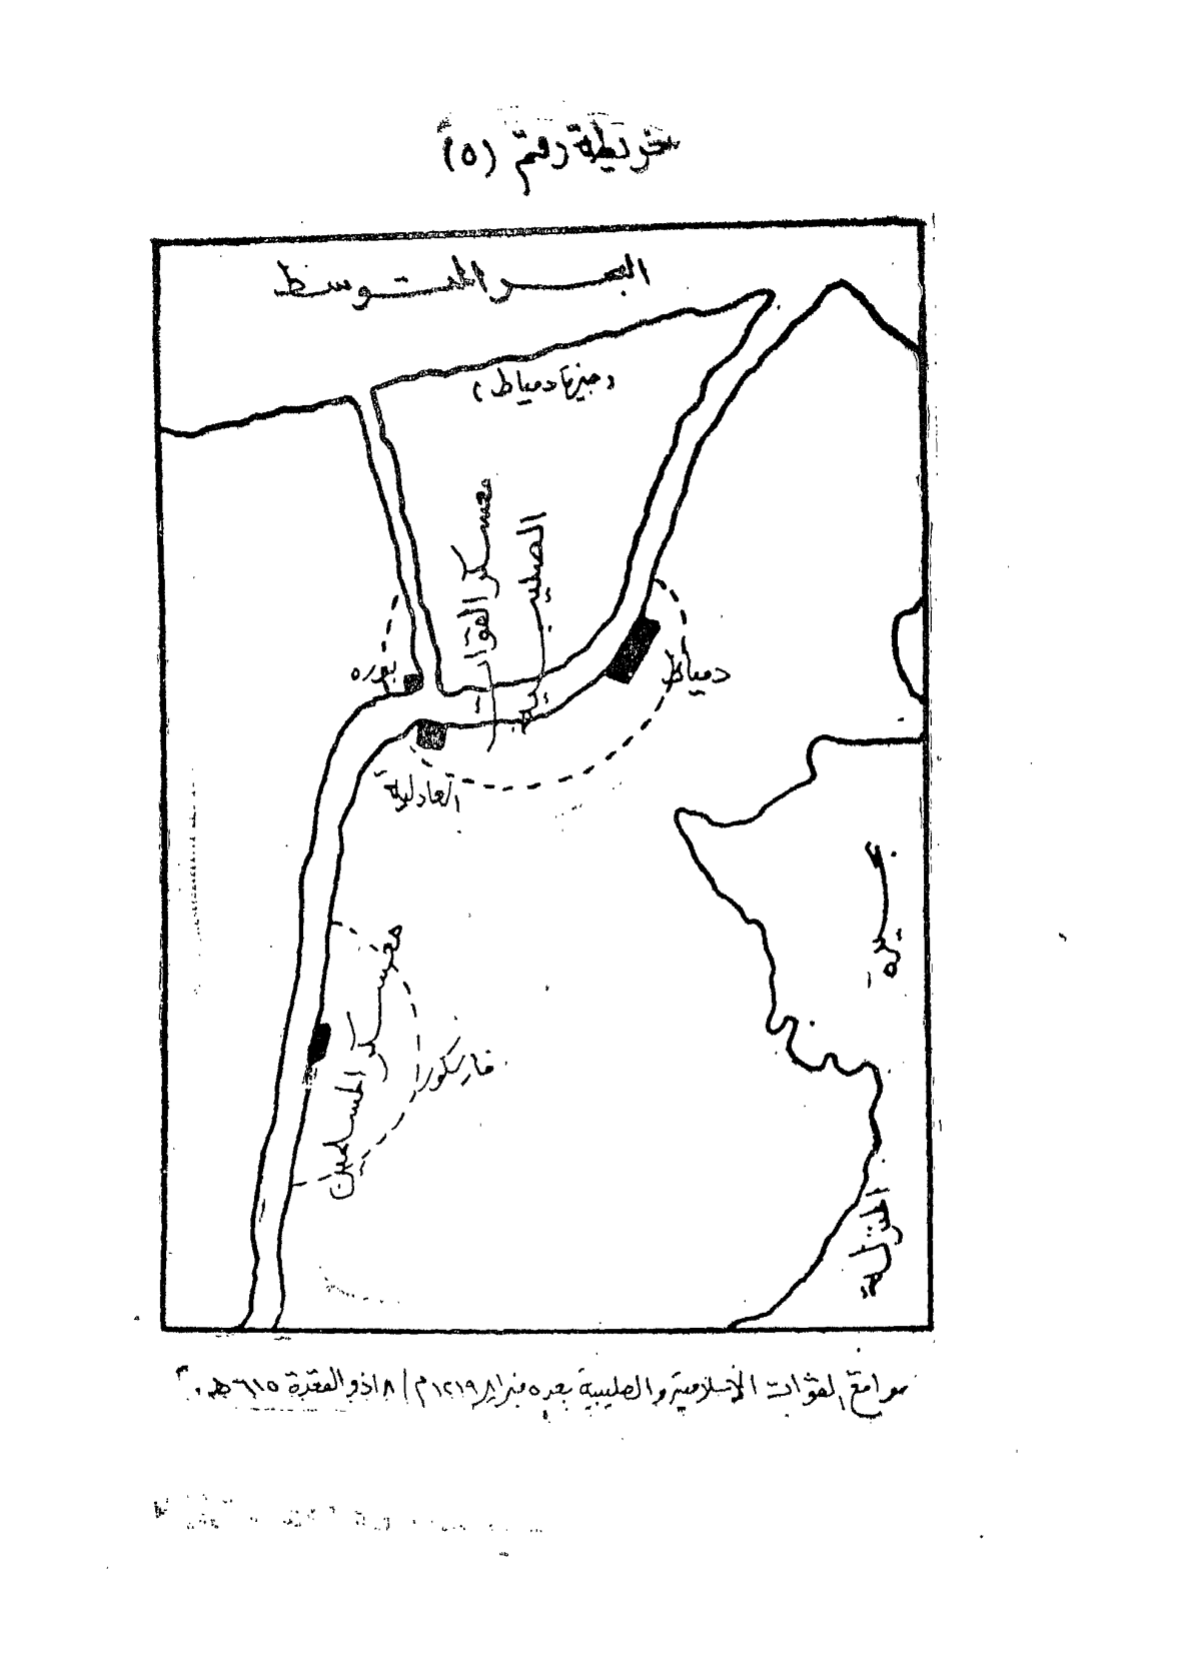 خريطة رقم (٥)
البحر المتوسط
(جيزة دمياط)
معسكر القوات
الصليبيية
بوره
دمياط
العادلية
بحيرة
معسكر المسلمين
فارسكور
المنزلة
مواقع القوات الأسلامية والصليبية بعد ٥ فبراير ١٢١٩م / ١٨ ذو القعدة ٦١٥ هـ.